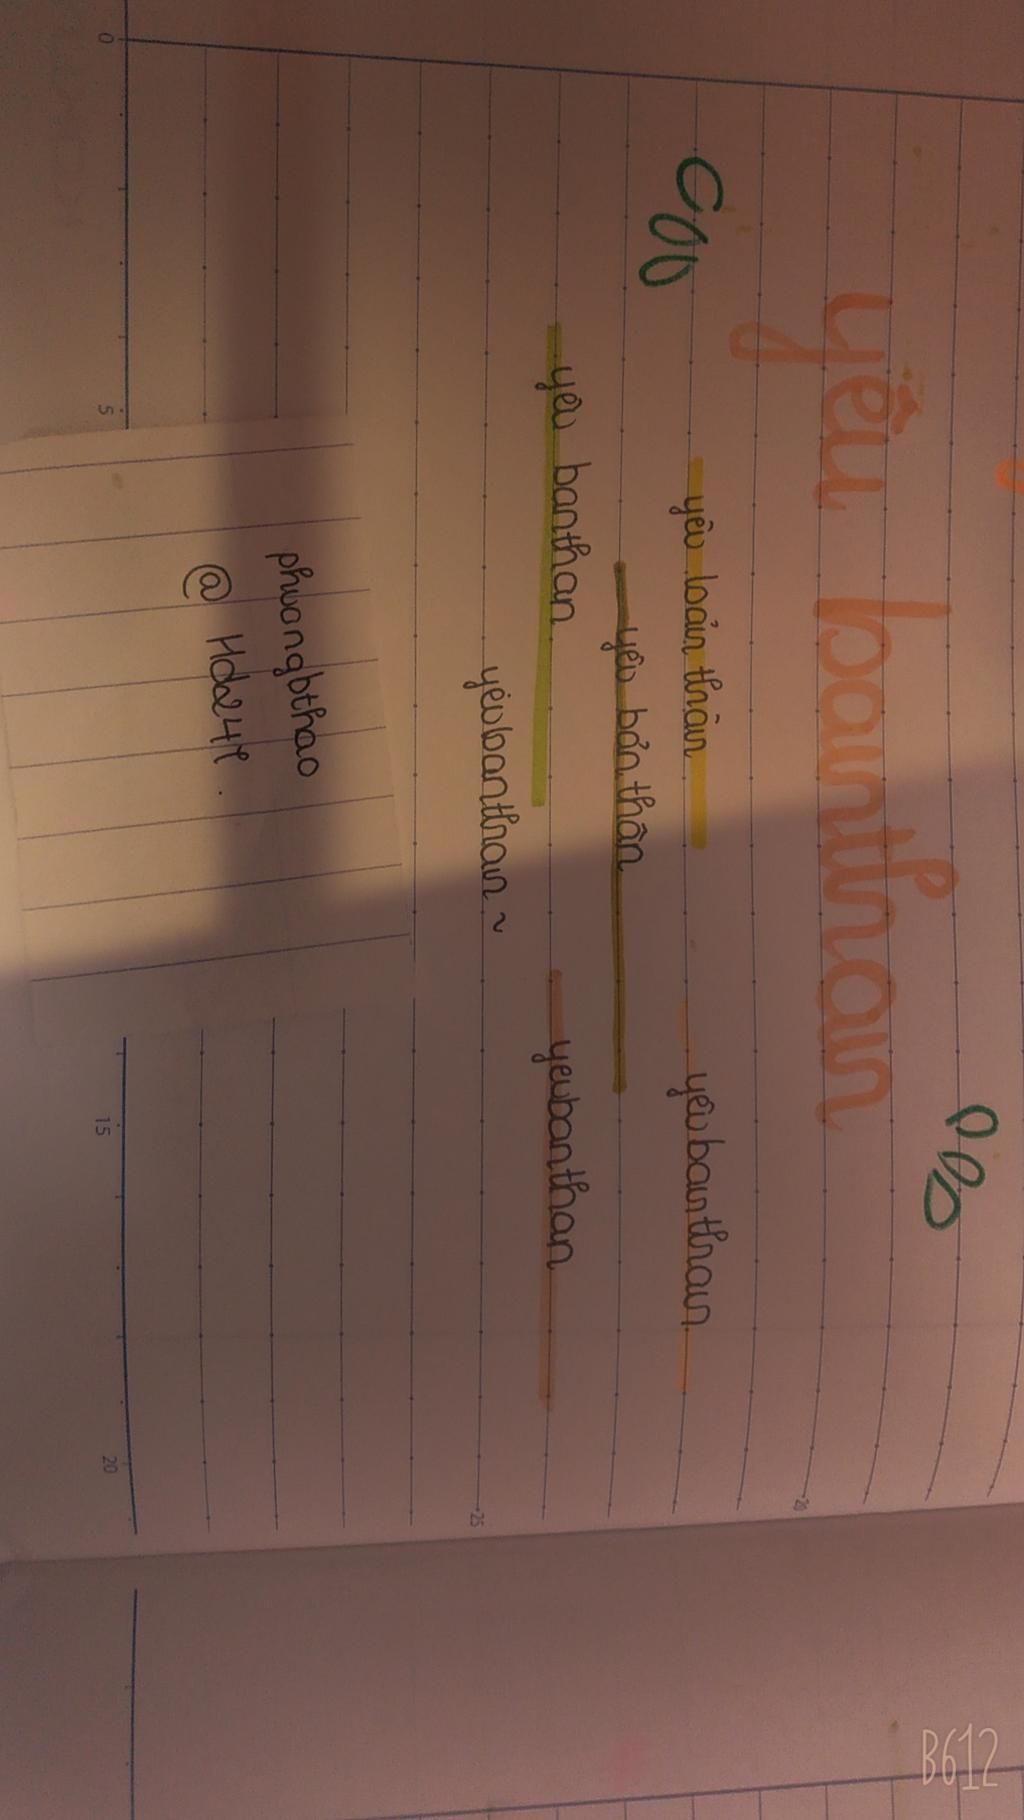 yêu banthan
yêu bản thân yêubanthan
yêu bản thân
yêu banthan yeubanthan
yêubanthan ~
phuongbthao
0
5
15
20
20
25
B612